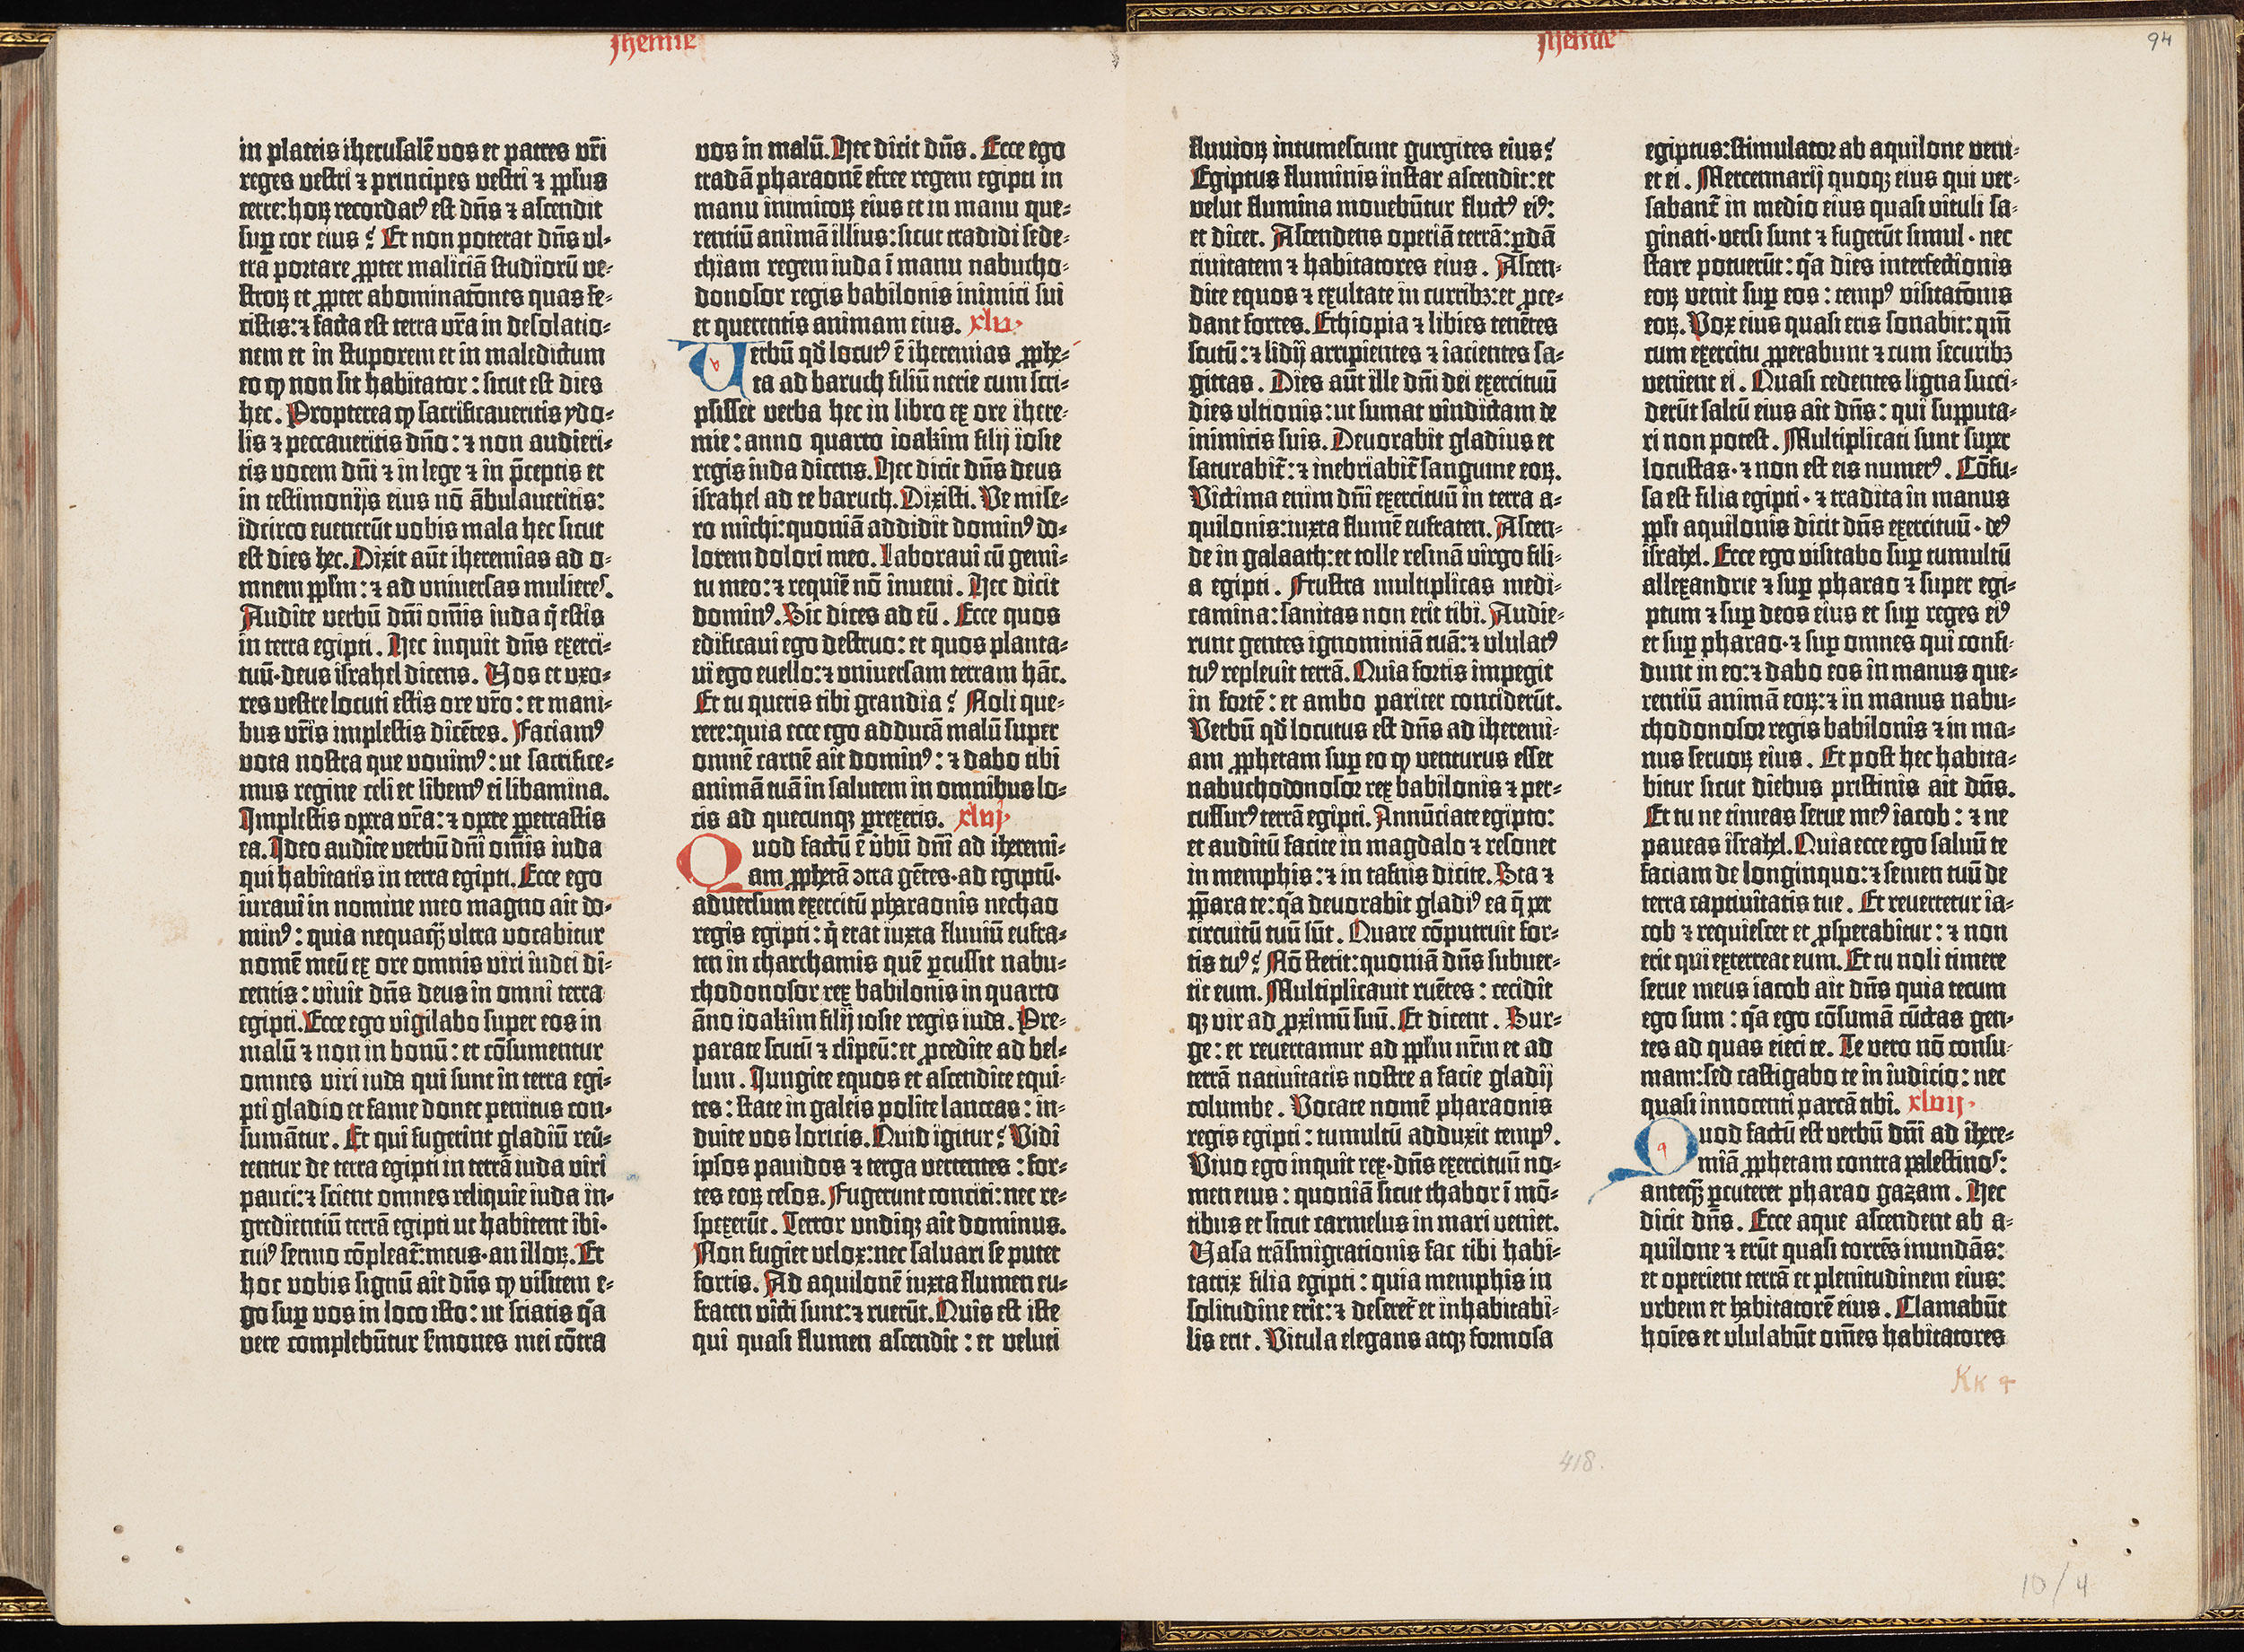 Jhemie
in plateis iherusalē vos et patres vr̄i
reges vestri ⁊ principes vestri ⁊ pp̄lus
terre: hoꝝ recordatꝰ est dn̄s ⁊ ascendit
suꝑ cor eius? Et non poterat dn̄s vl-
tra portare ꝓpter maliciā studiorū ve-
stroꝝ et ꝓpter abominatōnes quas fe-
cistis: ⁊ facta est terra vr̄a in desolatio-
nem et in stuporem et in maledictum
eo ꝙ non sit habitator: sicut est dies
hec. Propterea ꝙ sacrificaveritis ydo-
lis ⁊ peccaveritis dn̄o: ⁊ non audieri-
tis vocem dn̄i ⁊ in lege ⁊ in p̄ceptis et
in testimonijs eius nō ābulaveritis:
idcirco evenerūt vobis mala hec sicut
est dies hec. Dixit aūt iheremias ad o-
mnem pp̄lm: ⁊ ad vniversas mulieres.
Audite verbū dn̄i om̄is iuda q̄ estis
in terra egipti. Hec inquit dn̄s exerci-
tuū·deus israhel dicens. Vos et vxo-
res vestre locuti estis ore vr̄o: et mani-
bus vr̄is implestis dicētes. Faciamꝰ
vota nostra que vovimꝰ: ut sacrifice-
mus regine celi et libemꝰ ei libamina.
Implestis opera vr̄a: ⁊ opere ꝑpetrastis
ea. Ideo audite verbū dn̄i om̄is iuda
qui habitatis in terra egipti. Ecce ego
iuravi in nomine meo magno ait do-
minꝰ: quia nequaq̄ꝫ vltra vocabitur
nomē meū ex ore omnis viri iudei di-
centis: vivit dn̄s deus in omni terra
egipti. Ecce ego vigilabo super eos in
malū ⁊ non in bonū: et cōsumentur
omnes viri iuda qui sunt in terra egi-
pti gladio et fame donec penitus con-
sumātur. Et qui fugerint gladiū revē-
tentur de terra egipti in terrā iuda viri
pauci: ⁊ scient omnes reliquie iuda in-
gredientiū terrā egipti ut habitent ibi·
cuiꝰ sermo cōpleat̄: meus·an illoꝝ. Et
hoc vobis signū ait dn̄s ꝙ visitem e-
go suꝑ vos in loco isto: ut sciatis q̄a
vere complebūtur s̄mones mei cōtra
vos in malū. Hec dicit dn̄s. Ecce ego
tradā pharaonē efree regem egipti in
manu inimicoꝝ eius et in manu que-
rentiū animā illius: sicut tradidi sede-
chiam regem iuda ī manu nabucho-
donosor regis babilonis inimici sui
et querentis animam eius. xlv·
Verbū qd̄ locutꝰ ē iheremias ꝓphe-
ta ad baruch filiū nerie cum scri-
psisset verba hec in libro ex ore ihere-
mie: anno quarto ioakim filij iosie
regis iuda dicens. Hec dicit dn̄s deus
israhel ad te baruch. Dixisti. Ve mise-
ro michi: quoniā addidit dominꝰ do-
lorem dolori meo. Laboravi cū gemi-
tu meo: ⁊ requiē nō inveni. Hec dicit
dominꝰ. Sic dices ad eū. Ecce quos
edificavi ego destruo: et quos planta-
vi ego evello: ⁊ vniversam terram hāc.
Et tu queris tibi grandia? Noli que-
rere: quia ecce ego adducā malū super
omnē carnē ait dominꝰ: ⁊ dabo tibi
animā tuā in salutem in omnibus lo-
cis ad quecunqꝫ ꝑrexeris. xlvj·
Quod factū ē v̄bū dn̄i ad iheremi-
am ꝓphetā ↄtra gētes·ad egiptū·
adversum exercitū pharaonis nechao
regis egipti: q̄ erat iuxta fluviū eufra-
ten in charchamis quē ꝑcussit nabu-
chodonosor rex babilonis in quarto
āno ioakim filij iosie regis iuda. Pre-
parate scutū ⁊ clipeū: et ꝓcedite ad bel-
lum. Jungite equos et ascendite equi-
tes: state in galeis polite lanceas: in-
duite vos loricis. Quid igitur? Vidi
ipsos pavidos ⁊ terga vertentes: for-
tes eoꝝ cesos. Fugerunt conciti: nec re-
spexerūt. Terror vndiqꝫ ait dominus.
Non fugiet velox: nec salvari se putet
fortis. Ad aquilonē iuxta flumen eu-
fraten victi sunt: ⁊ ruerūt. Quis est iste
qui quasi flumen ascendit: et veluti
Jhemie
94
fluvioꝝ intumescunt gurgites eius?
Egiptus fluminis instar ascendit: et
velut flumina movebūtur fluctꝰ eiꝰ:
et dicet. Ascendens operiā terrā: ꝑdā
civitatem ⁊ habitatores eius. Ascen-
dite equos ⁊ exultate in curribꝫ: et ꝓce-
dant fortes. Ethiopia ⁊ libies tenētes
scutū: ⁊ lidij arripientes ⁊ iacientes sa-
gittas. Dies aūt ille dn̄i dei exercituū
dies vltionis: ut sumat vindictam de
inimicis suis. Devorabit gladius et
saturabit̄: ⁊ inebriabit̄ sanguine eoꝝ.
Victima enim dn̄i exercituū in terra a-
quilonis: iuxta flumē eufraten. Ascen-
de in galaath: et tolle resinā virgo fili-
a egipti. Frustra multiplicas medi-
camina: sanitas non erit tibi. Audie-
runt gentes ignominiā tuā: ⁊ vlulatꝰ
tuꝰ replevit terrā. Quia fortis impegit
in fortē: et ambo pariter conciderūt.
Verbū qd̄ locutus est dn̄s ad iheremi-
am ꝓphetam suꝑ eo ꝙ venturus esset
nabuchodonosor rex babilonis ⁊ per-
cussurꝰ terrā egipti. Annūciate egipto:
et auditū facite in magdalo ⁊ resonet
in memphis: ⁊ in tafnis dicite. Sta ⁊
p̄para te: q̄a devorabit gladiꝰ ea q̄ per
circuitū tuū sūt. Quare cōputruit for-
tis tuꝰ? Nō stetit: quoniā dn̄s subver-
tit eum. Multiplicavit ruētes: cecidit
qꝫ vir ad ꝓximū suū. Et dicent. Sur-
ge: et revertamur ad pp̄lm nr̄m et ad
terrā nativitatis nostre a facie gladij
columbe. Vocate nomē pharaonis
regis egipti: tumultū adduxit tempꝰ.
Vivo ego inquit rex·dn̄s exercituū no-
men eius: quoniā sicut thabor ī mō-
tibus et sicut carmelus in mari veniet.
Vasa trāsmigrationis fac tibi habi-
tatrix filia egipti: quia memphis in
solitudine erit: ⁊ deseret̄ et inhabitabi-
lis erit. Vitula elegans atqꝫ formosa
egiptus: stimulator ab aquilone veni-
et ei. Mercennarij quoqꝫ eius qui ver-
sabant̄ in medio eius quasi vituli sa-
ginati·versi sunt ⁊ fugerūt simul·nec
stare potuerūt: q̄a dies interfectionis
eoꝝ venit suꝑ eos: tempꝰ visitatōnis
eoꝝ. Vox eius quasi eris sonabit: qm̄
cum exercitu ꝓperabunt ⁊ cum securibꝫ
venient ei. Quasi cedentes ligna succi-
derūt saltū eius ait dn̄s: qui supputa-
ri non potest. Multiplicati sunt super
locustas·⁊ non est eis numerꝰ. Cōfu-
sa est filia egipti·⁊ tradita in manus
pp̄li aquilonis dicit dn̄s exercituū·deꝰ
israhel. Ecce ego visitabo suꝑ tumultū
allexandrie ⁊ suꝑ pharao ⁊ super egi-
ptum ⁊ suꝑ deos eius et suꝑ reges eiꝰ
et suꝑ pharao·⁊ suꝑ omnes qui confi-
dunt in eo: ⁊ dabo eos in manus que-
rentiū animā eoꝝ: ⁊ in manus nabu-
chodonosor regis babilonis ⁊ in ma-
nus servoꝝ eius. Et post hec habita-
bitur sicut diebus pristinis ait dn̄s.
Et tu ne timeas serve meꝰ iacob: ⁊ ne
paveas israhel. Quia ecce ego salvū te
faciam de longinquo: ⁊ semen tuū de
terra captivitatis tue. Et revertetur ia-
cob ⁊ requiescet et ꝓsperabitur: ⁊ non
erit qui exterreat eum. Et tu noli timere
serve meus iacob ait dn̄s quia tecum
ego sum: q̄a ego cōsumā cūctas gen-
tes ad quas eieci te. Te vero nō consu-
mam: sed castigabo te in iudicio: nec
quasi innocenti parcā tibi. xlvij·
Quod factū est verbū dn̄i ad ihere-
miā ꝓphetam contra palestinos:
anteq̄ꝫ ꝑcuteret pharao gazam. Hec
dicit dn̄s. Ecce aque ascendent ab a-
quilone ⁊ erūt quasi torrēs inundās:
et operient terrā et plenitudinem eius:
vrbem et habitatorē eius. Clamabūt
hoīes et vlulabūt om̄es habitatores
Kk 4
418.
10/4